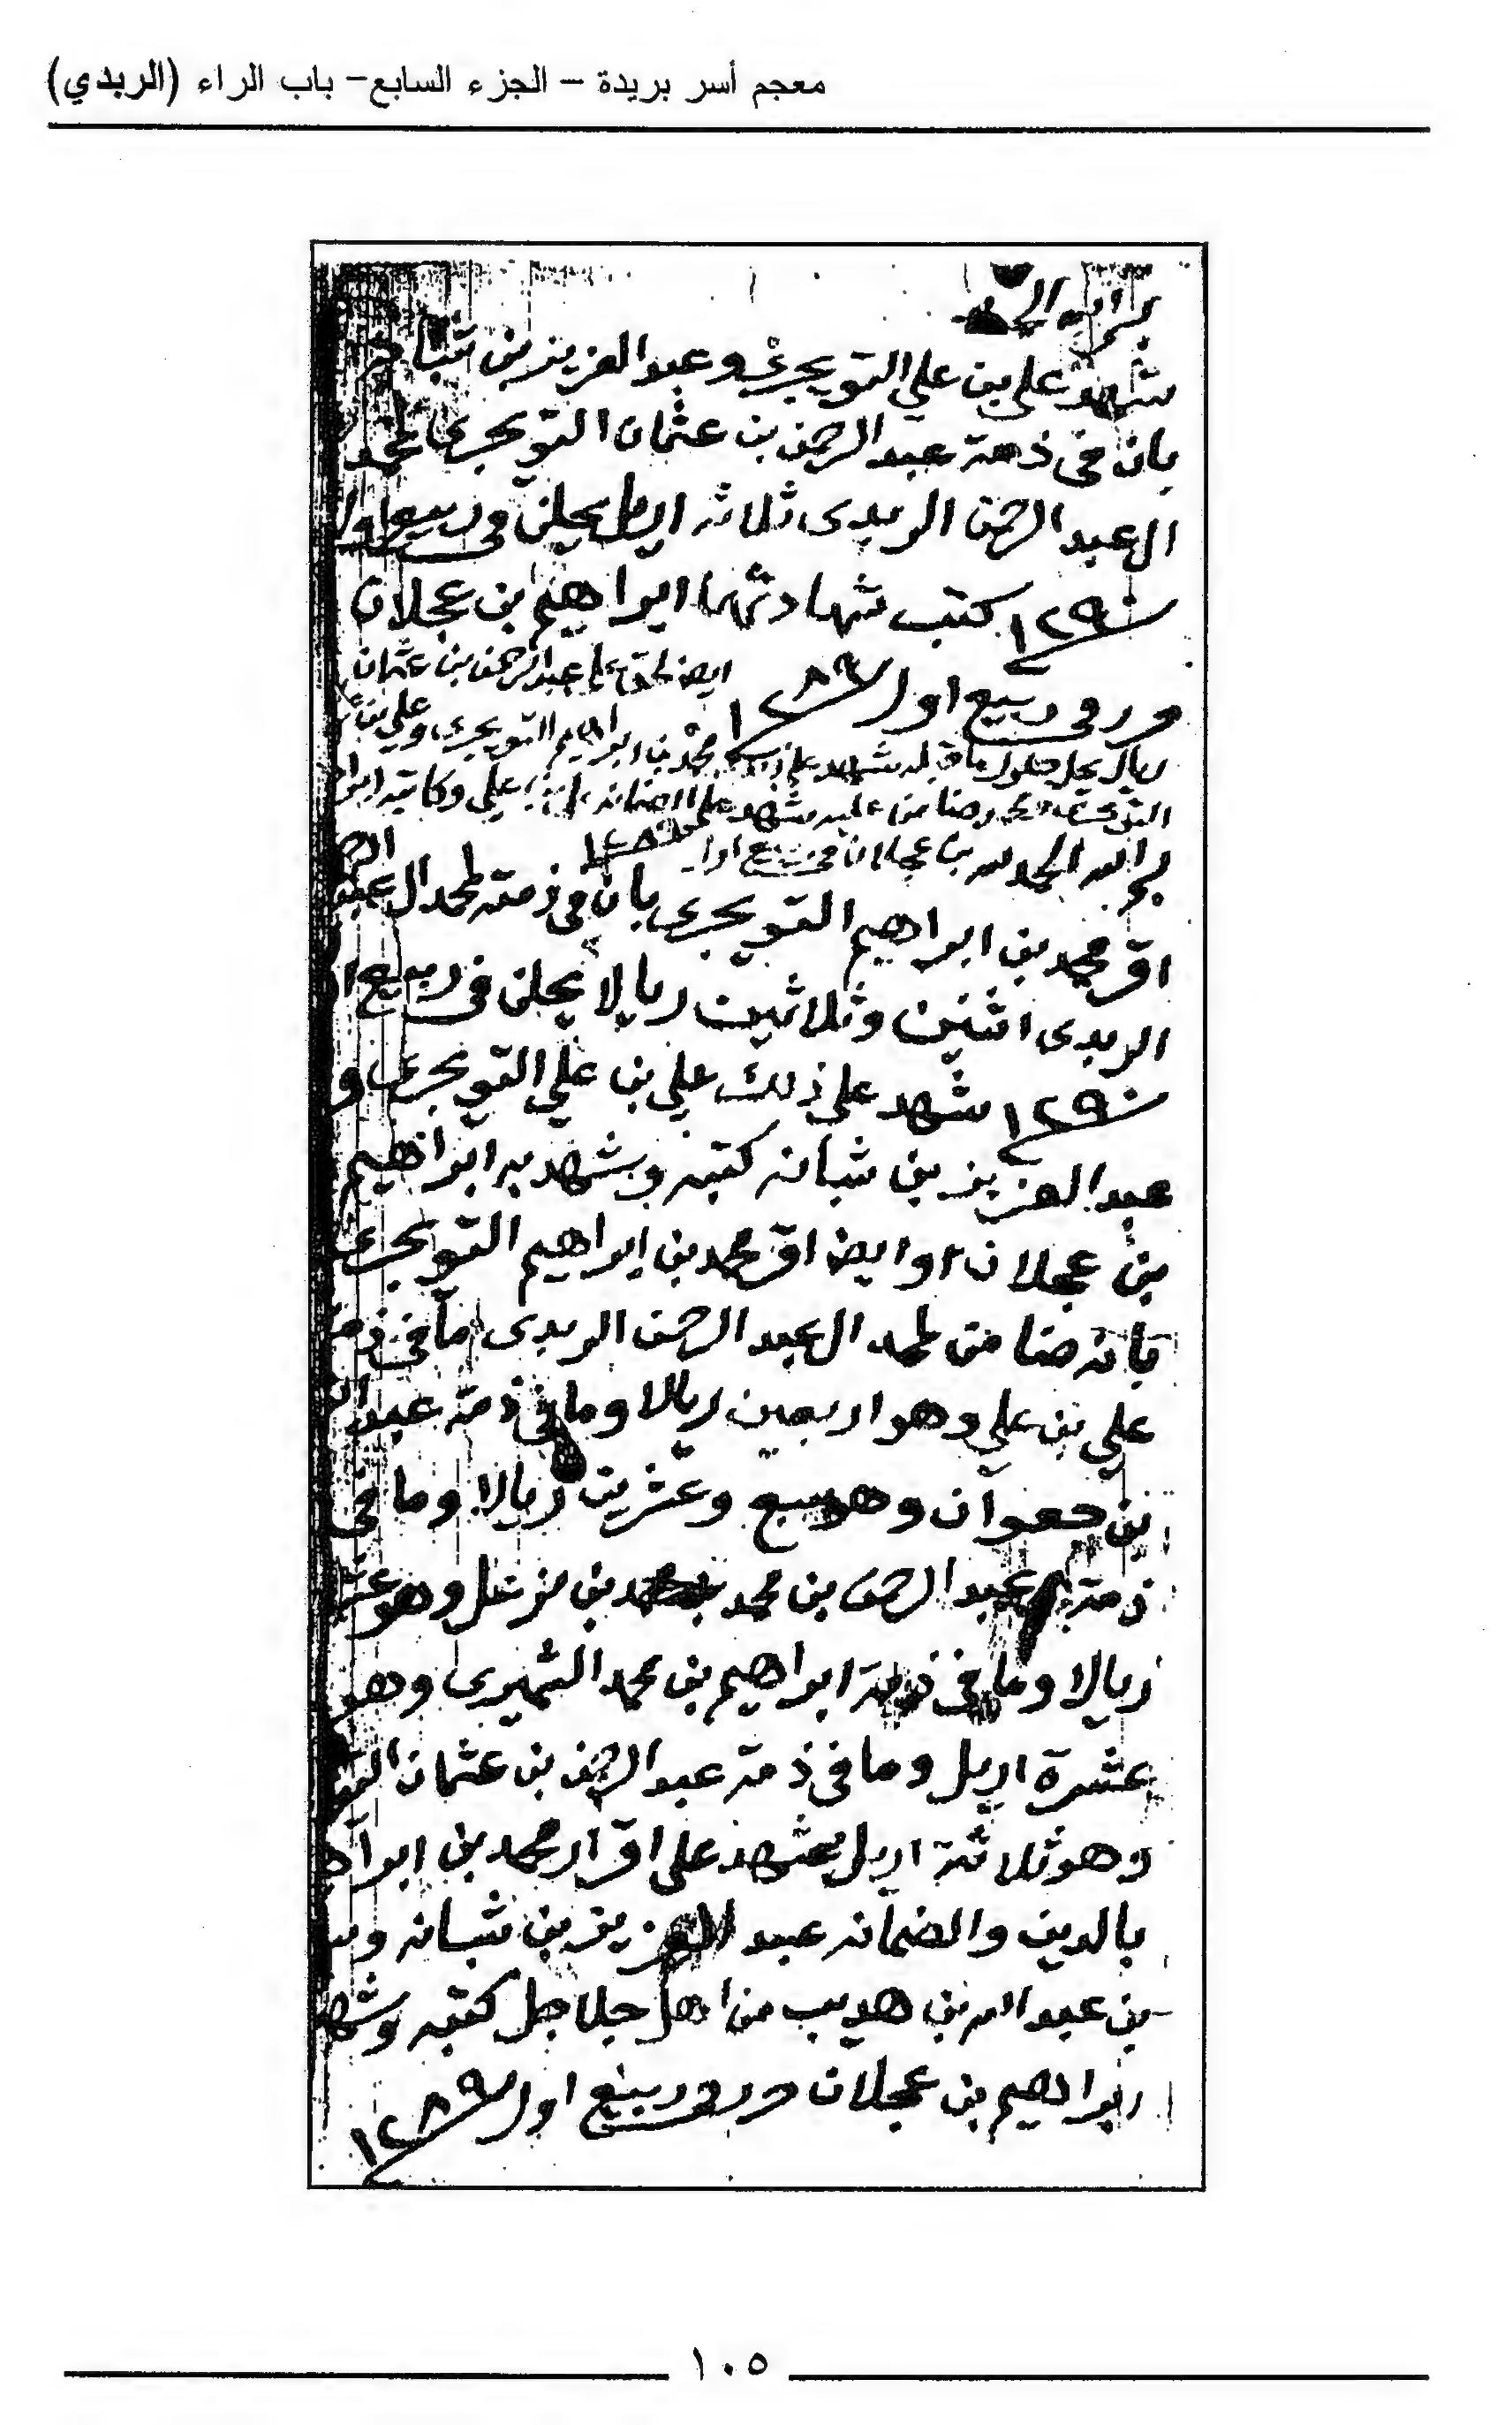 معجم أسر بريدة – الجزء السابع– باب الراء (الربدي)
شهد علي بن علي التويجري وعبد العزيز بن شبا
بان في ذمة عبد الرحمن بن عثمان التويجري لمحمد
ال عبد الرحمن الربدي ثلاثة اريل يحلن في ربيع اول
سنة ١٢٩٠ كتب شهادتهما ابراهيم بن عجلان
حرر في ربيع اول سنة ١٢٨٩
ايضا لحق على عبد الرحمن بن عثمان
ريال يحل حلول ما قبله شهد على ذلك محمد بن ابراهيم التويجري وعلي بن
التويجري علي وكاتبه
الحمد لله بن عجلان في ربيع اول
اقر محمد بن ابراهيم التويجري بان في ذمته لمحمد ال عبد
الربدي اثنين وثلاثين ريالا يحلن في ربيع
سنة ١٢٩٠ شهد على ذلك علي بن علي التويجري و
عبد العزيز بن شبانه كتبه وشهد به ابراهيم
بن عجلان وايضا اقر محمد بن ابراهيم التويجري
بانه ضامن لمحمد ال عبد الرحمن الربدي ما في ذمة
علي بن علي وهو اربعين ريالا وما في ذمة عبد
بن جعوان وهو سبع وعشرين ريالا وما في
ذمة عبد الرحمن بن محمد بن مزعل وهو
ريالا وما في ذمة ابراهيم بن محمد الشميري وهو
عشرة اريل وما في ذمة عبد الرحمن بن عثمان
وهو ثلاثة اريل شهد على اقرار محمد بن ابراه
بالدين والضمانه عبد العزيز بن شبانه
بن عبد الله بن هديب من اهل جلاجل كتبه وشهد
ابراهيم بن عجلان حرر في ربيع اول سنة ١٢٨٩
١٠٥